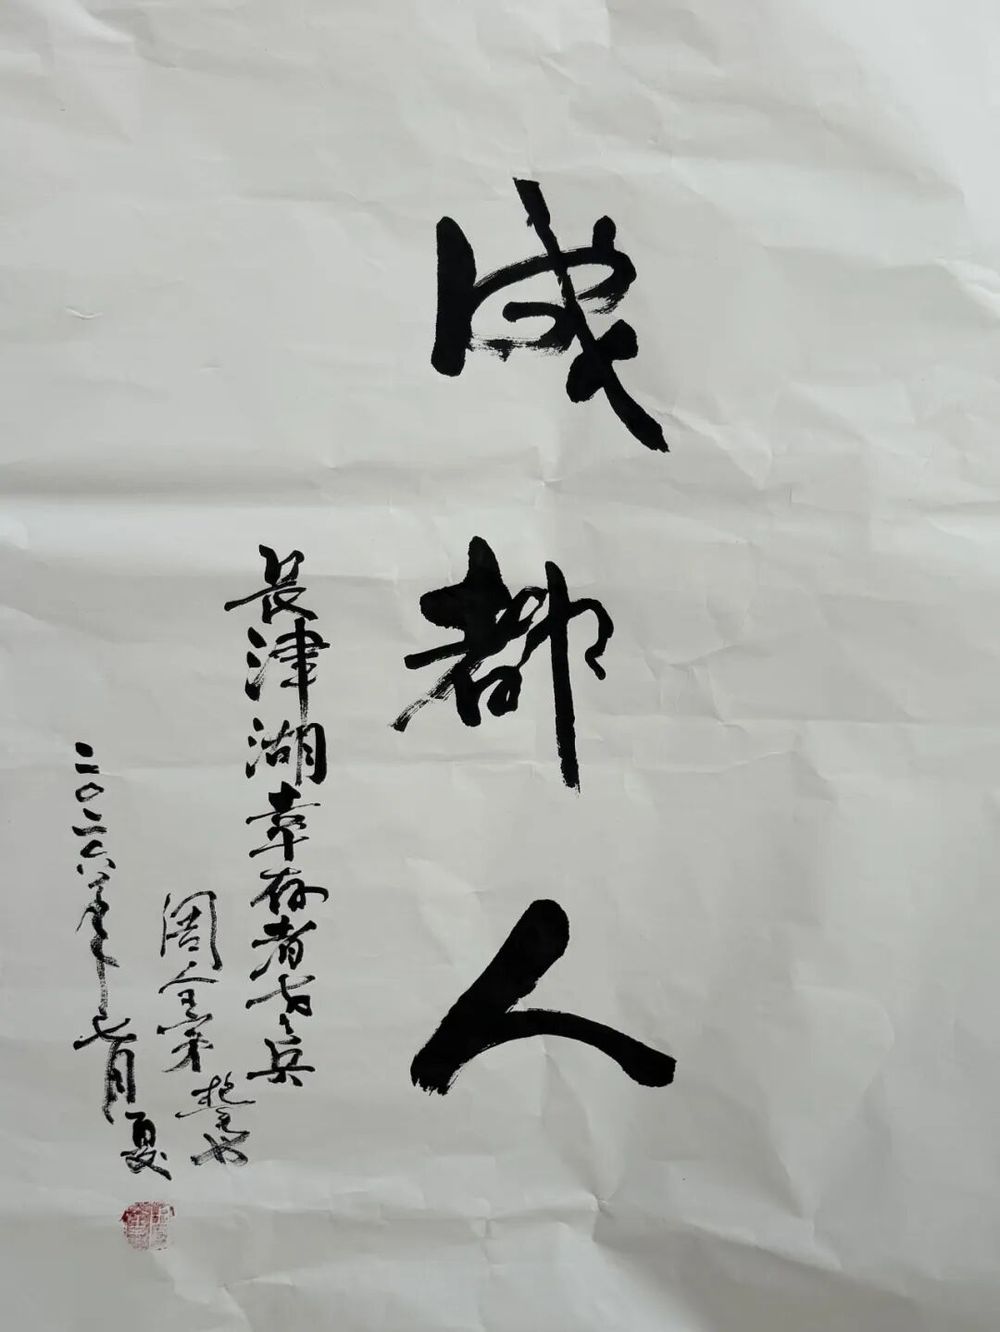 成都人
长津湖幸存者老兵
周全第 拙笔
二〇二六年七月夏